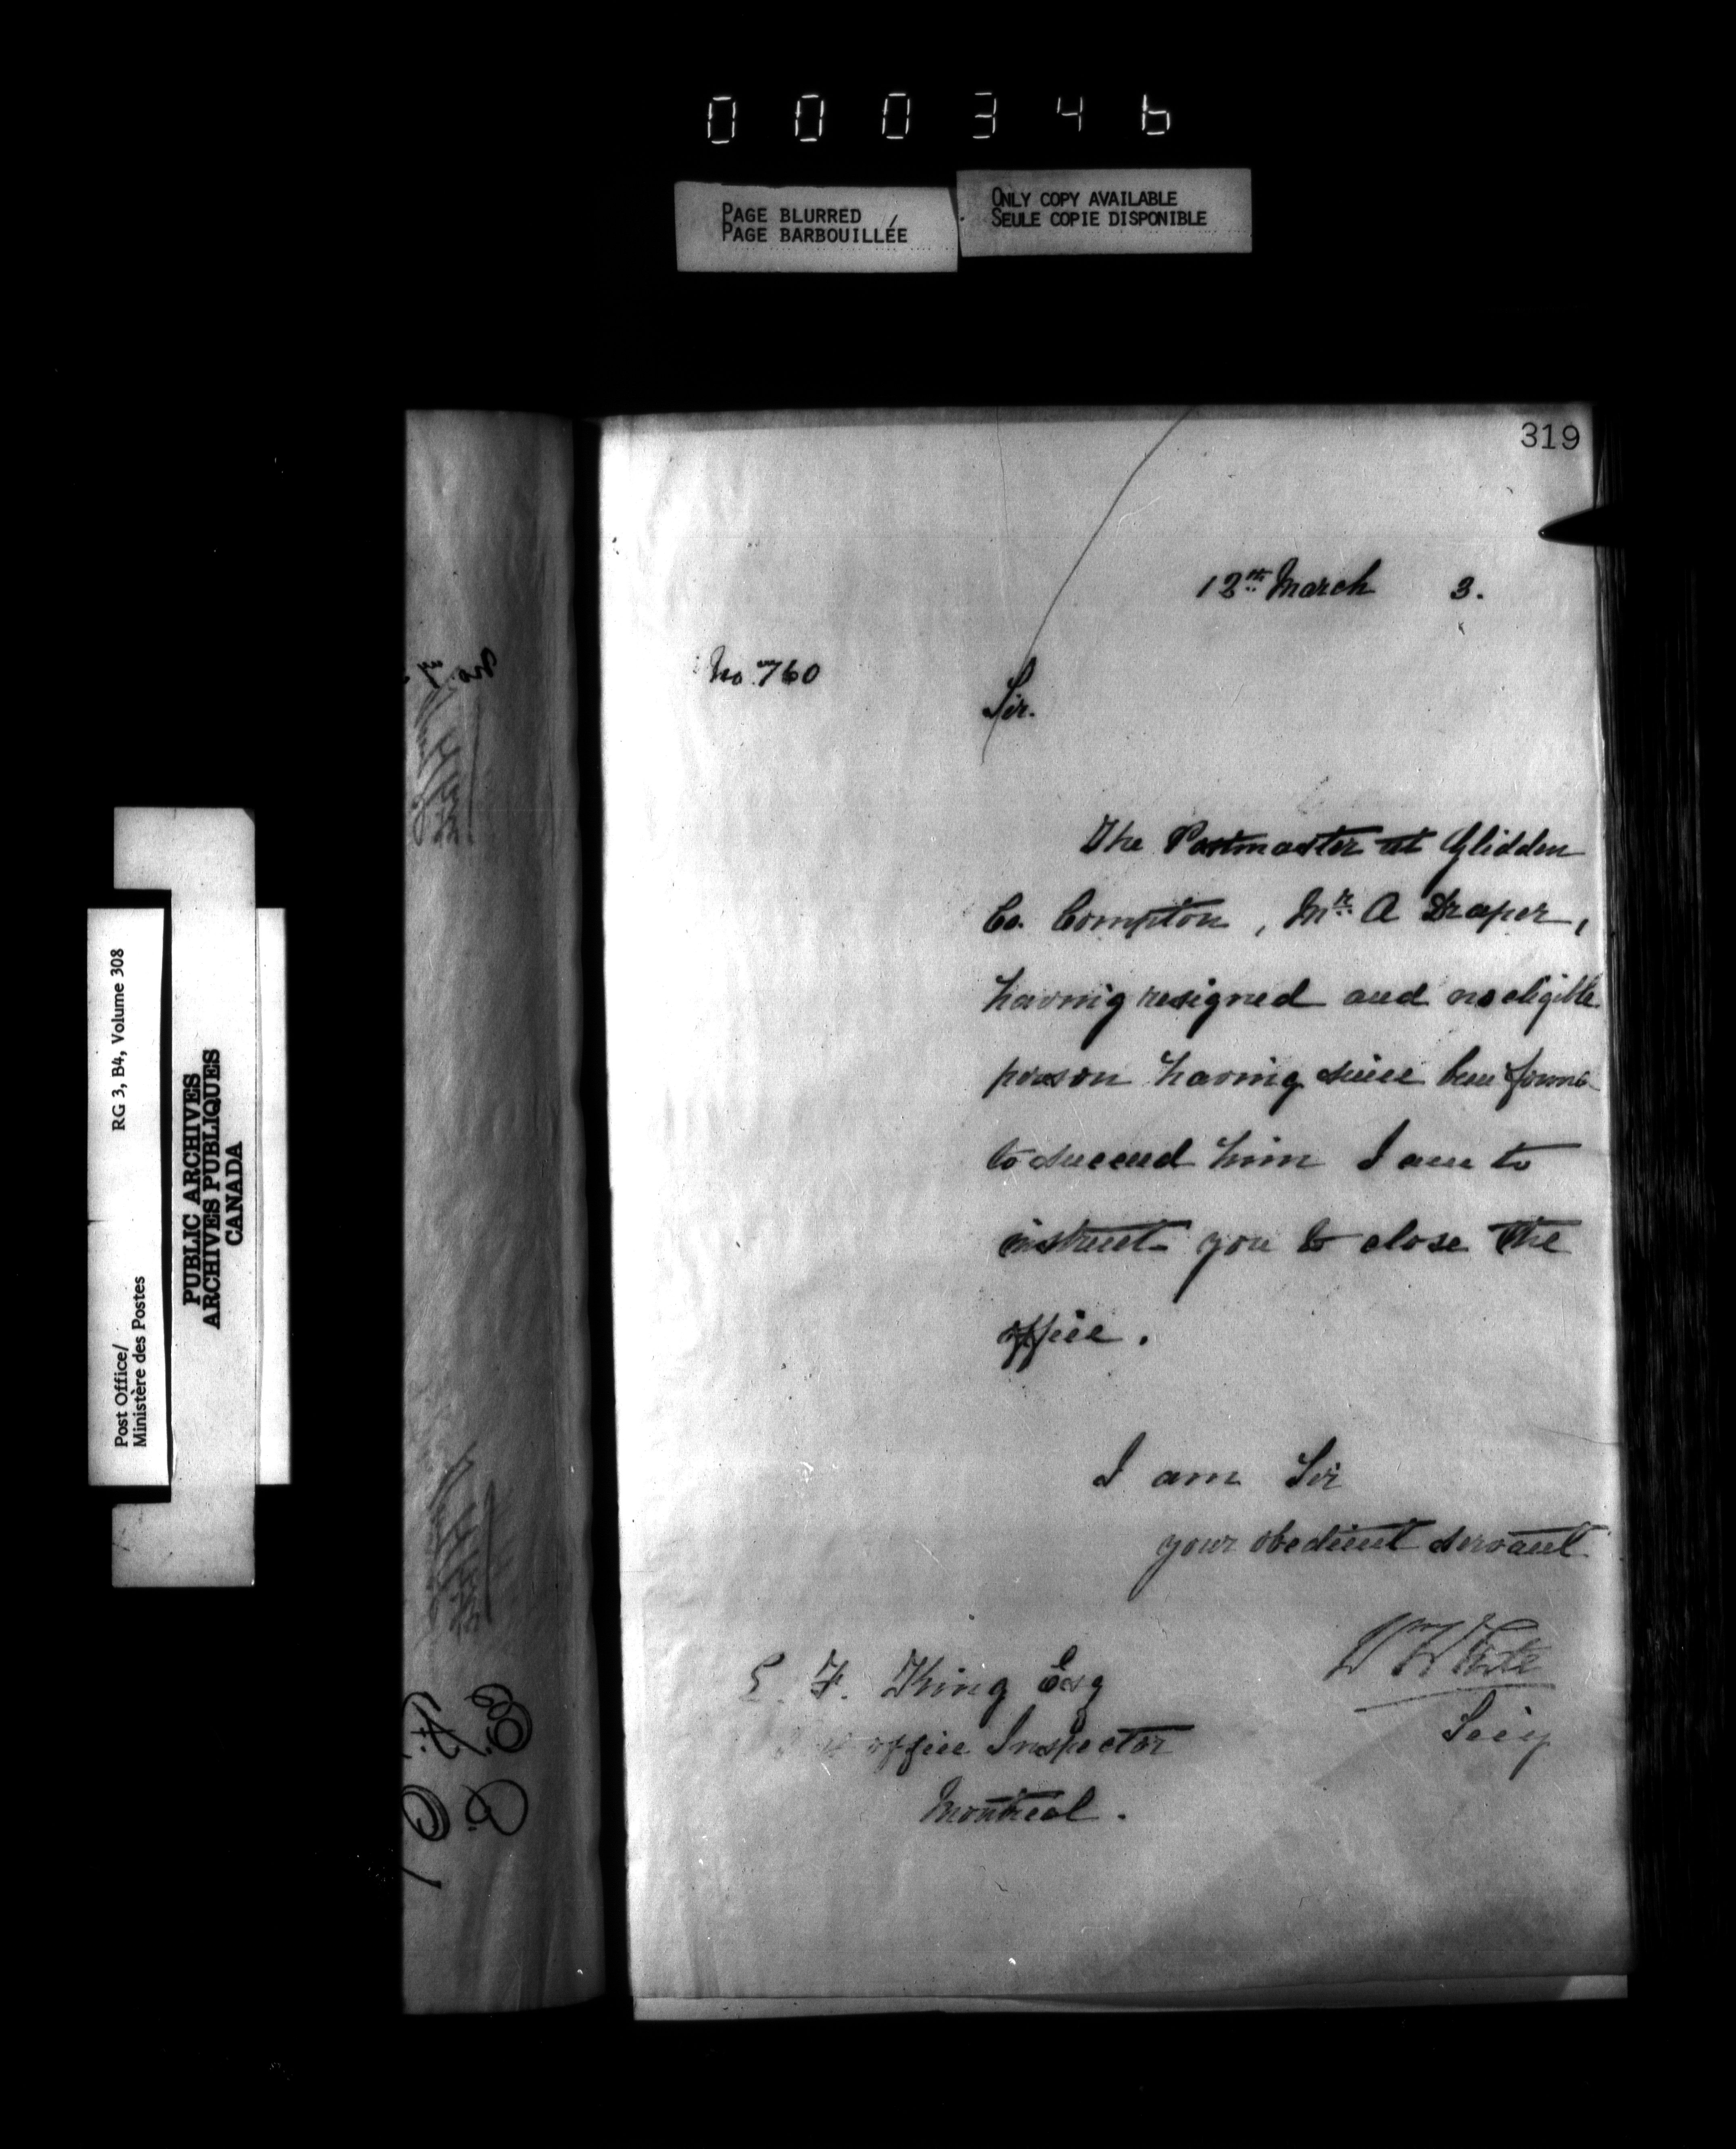 000346
PAGE BLURRED
PAGE BARBOUILLÉE
ONLY COPY AVAILABLE
SEULE COPIE DISPONIBLE
RG 3, B4, Volume 308
Post Office/
Ministère des Postes
PUBLIC ARCHIVES
ARCHIVES PUBLIQUES
CANADA
319
12th March 3.
No. 760
Sir.
The Postmaster at Glidden
Co. Compton, Mr. A Draper,
having resigned and no eligible
person having since been found
to succeed him I am to
instruct you to close the
office.
I am Sir
your obedient servant
W White
Secy
E. F. King Esq
office Inspector
Montreal.